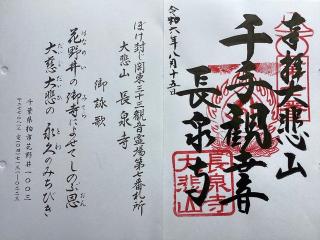 奉拝 大悲山
千手観世音
長泉寺
令和六年八月十五日
長泉寺
大悲山
ぼけ封じ関東三十三観音霊場第七番札所
大悲山 長泉寺
御詠歌
花野井の御寺によせてしのぶ恩
大慈大悲の永久のみちびき
千葉県柏市花野井一〇〇三